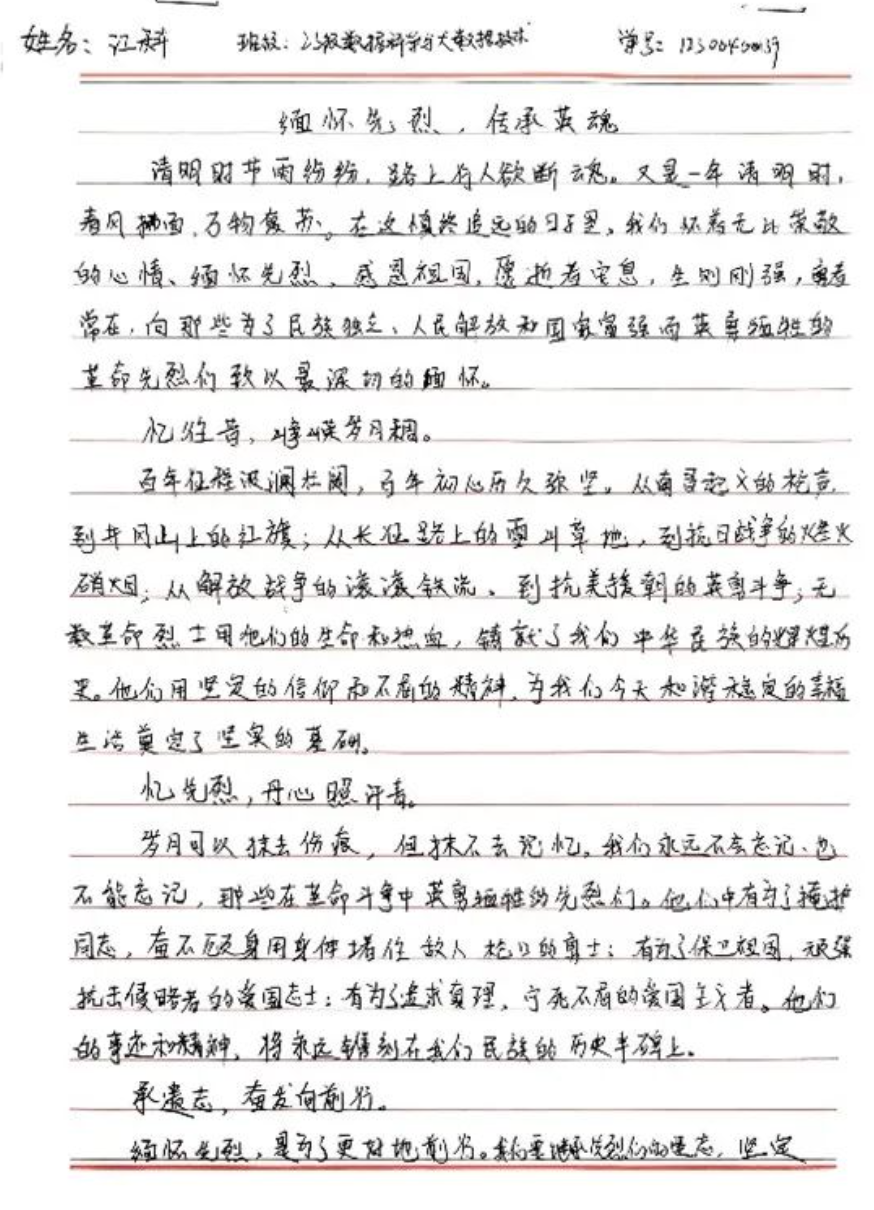 姓名：江科 班级：23级数据科学与大数据技术 学号：
缅怀先烈，传承英魂
清明时节雨纷纷，路上行人欲断魂。又是一年清明时，
春风拂面，万物复苏。在这慎终追远的日子里，我们怀着无比崇敬
的心情、缅怀先烈、感恩祖国，愿逝者安息，生则刚强，勇者
常在，向那些为了民族独立、人民解放和国家富强而英勇牺牲的
革命先烈们致以最深切的缅怀。
忆往昔，峥嵘岁月稠。
百年征程波澜壮阔，百年初心历久弥坚。从南昌起义的枪声，
到井冈山上的红旗；从长征路上的雪山草地，到抗日战争的烽火
硝烟；从解放战争的滚滚铁流、到抗美援朝的英勇斗争；无
数革命烈士用他们的生命和热血，铸就了我们中华民族的辉煌历
史。他们用坚定的信仰和不屈的精神，为我们今天和谐稳定的幸福
生活奠定了坚实的基础。
忆先烈，丹心照汗青。
岁月可以抹去伤痕，但抹不去记忆。我们永远不会忘记、也
不能忘记，那些在革命斗争中英勇牺牲的先烈们。他们中有为了掩护
同志，奋不顾身用身体堵住敌人枪口的勇士；有为了保卫祖国，顽强
抗击侵略者的爱国志士；有为了追求真理，宁死不屈的爱国主义者。他们
的事迹和精神，将永远镌刻在我们民族的历史丰碑上。
承遗志，奋发向前行。
缅怀先烈，是为了更好地前行。我们要继承先烈们的遗志，坚定